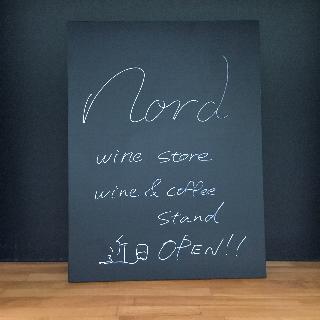 Nord
wine store
wine & coffee
stand
近日 OPEN!!